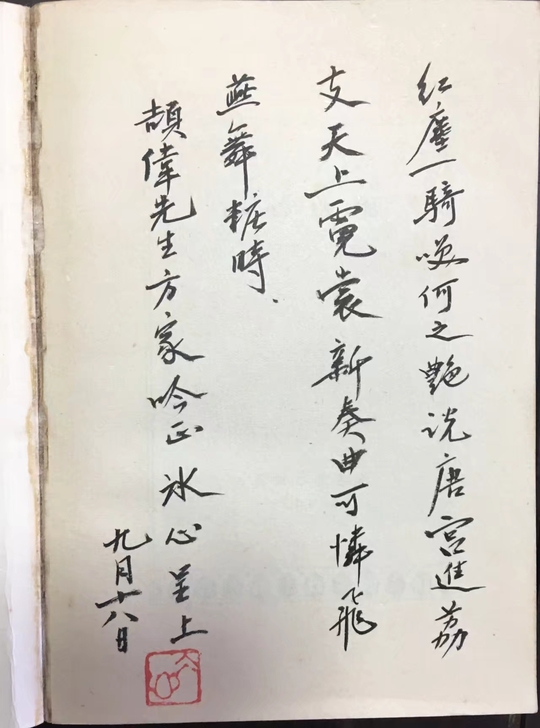 红塵一騎咲何之艷说唐宫進荔
支天上霓裳新奏曲可憐飛
燕舞粧時、
頡偉先生方家吟正 冰心呈上
九月十八日